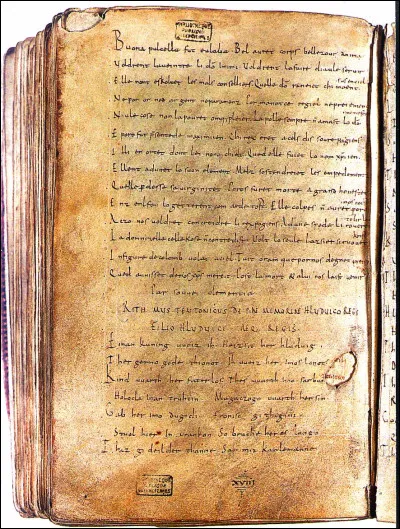 BIBLIOTHEQUE
Buona pulcella fut eulalia. Bel auret corps bellezour anima
Voldrent la ueintre li dō Inimi. Voldrent la faire diaule seruir
Elle nont eskoltet les mals conselliers. Quelle dō raneiet chi maent sus en ciel
Ne por or ned argent ne paramenz. Por manatce regiel ne preiement
Niule cose non la pouret omque pleier. La polle sempre n amast lo dō menestier
E poro fut presentede maximiien. Chi rex eret a cels dis soure pagiens
Il li enortet dont lei nonque chielt. Qued elle fuiet lo nom xpiien.
Ellent adunet lo suon element. Melz sostendreiet les empedementz
Quelle perdesse sa uirginitet. Poros furet morte a grand honestet
Enz enl fou la getterent com arde tost. Elle colpes n auret poro nos coist
Aczo nos uoldret concreidre li rex pagiens. Ad une spede li roueret tolir lo chief
La domnizelle celle kose n contredist. Volt lo seule lazsier si ruouet krist
In figure de colomb uolat a ciel. Tuit oram que por nos degnet preier
Qued auuisset de nos xps mercit Post la mort & a lui nos laist uenir
Par souue clementia.
RITHMUS TEUTONICUS DE PIAE MEMORIAE HLUDUICO REGE
FILIO HLUDUICI AEQ; REGIS.
Einan kuning uueiz ih. Heizsit her hluduig.
Ther gerno gode thionot. Ih uueiz her imos lonot.
Kind uuarth her faterlos. Thes uuarth imo sar buoz
Holoda inan truhtin. Magaczogo uuarth her sin.
Gab her imo dugidi. Fronisc githigini.
Stual hier In urankon. So bruche her es lango.
Thaz gideilder thanne. Sar mit karlemanne.
XVIII